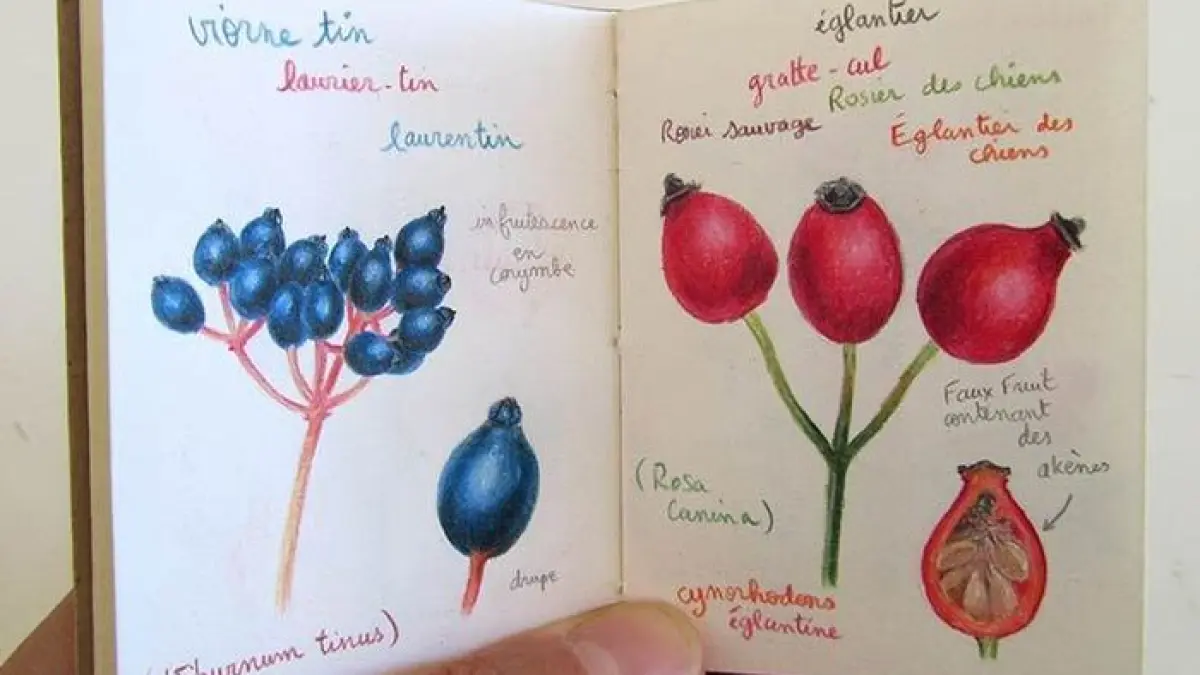 viorne tin
laurier-tin
laurentin
infrutescence
en
corymbe
drupe
(Viburnum tinus)
églantier
gratte-cul
Rosier des chiens
Rosier sauvage
Églantier des
chiens
Faux Fruit
contenant
des
akènes
(Rosa
Canina)
cynorhodons
églantine